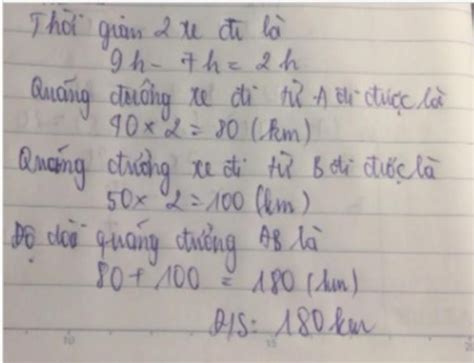 Thời gian 2 xe đi là
9h - 7h = 2h
Quãng đường xe đi từ A đi được là
40 × 2 = 80 (km)
Quãng đường xe đi từ B đi được là
50 × 2 = 100 (km)
Độ dài quãng đường AB là
80 + 100 = 180 (km)
Đ/S: 180 km
10
15